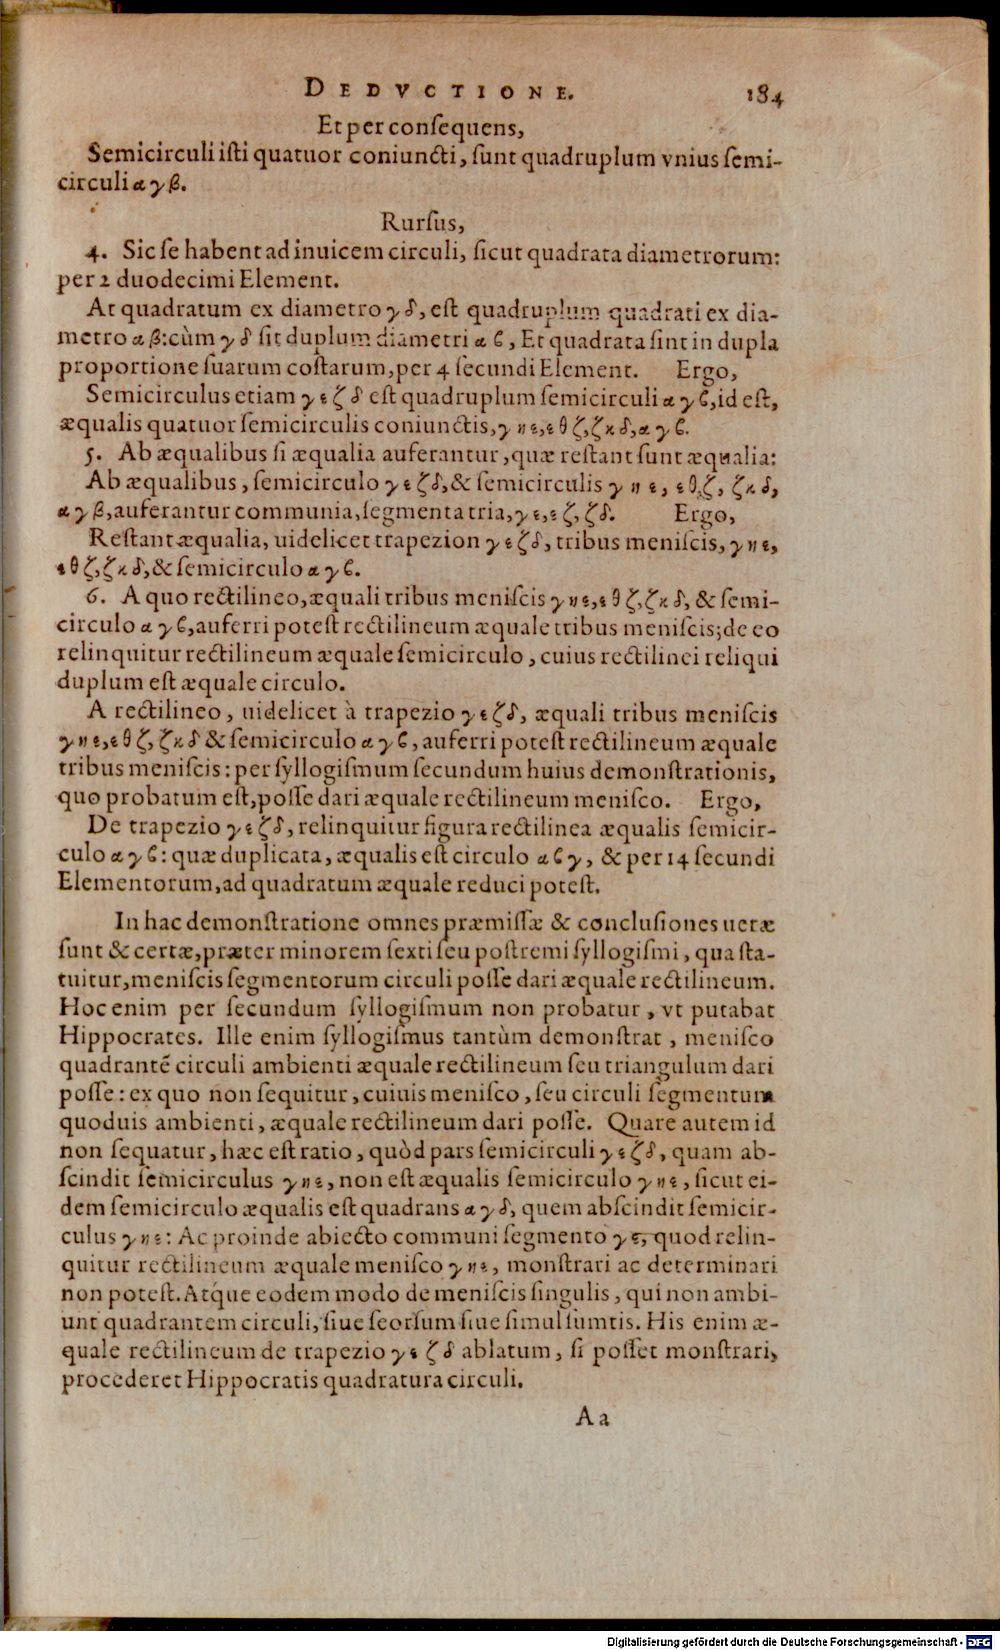 DEDVCTIONE. 184
Et per conſequens,
Semicirculi iſti quatuor coniuncti, ſunt quadruplum vnius ſemi-
circuli α γ β.
Rurſus,
4. Sic ſe habent ad inuicem circuli, ſicut quadrata diametrorum:
per 2 duodecimi Element.
At quadratum ex diametro γ δ, eſt quadruplum quadrati ex dia-
metro α β: cùm γ δ ſit duplum diametri α ϐ, Et quadrata ſint in dupla
proportione ſuarum coſtarum, per 4 ſecundi Element. Ergo,
Semicirculus etiam γ ε ζ δ eſt quadruplum ſemicirculi α γ ϐ, id eſt,
æqualis quatuor ſemicirculis coniunctis, γ η ε, ε θ ζ, ζ κ δ, α γ ϐ.
5. Ab æqualibus ſi æqualia auferantur, quæ reſtant ſunt æqualia:
Ab æqualibus, ſemicirculo γ ε ζ δ, & ſemicirculis γ η ε, ε θ ζ, ζ κ δ,
α γ β, auferantur communia, ſegmenta tria, γ ε, ε ζ, ζ δ. Ergo,
Reſtant æqualia, uidelicet trapezion γ ε ζ δ, tribus meniſcis, γ η ε,
ε θ ζ, ζ κ δ, & ſemicirculo α γ ϐ.
6. A quo rectilineo, æquali tribus meniſcis γ η ε, ε θ ζ, ζ κ δ, & ſemi-
circulo α γ ϐ, auferri poteſt rectilineum æquale tribus meniſcis; de eo
relinquitur rectilineum æquale ſemicirculo, cuius rectilinei reliqui
duplum eſt æquale circulo.
A rectilineo, uidelicet à trapezio γ ε ζ δ, æquali tribus meniſcis
γ η ε, ε θ ζ, ζ κ δ & ſemicirculo α γ ϐ, auferri poteſt rectilineum æquale
tribus meniſcis: per ſyllogiſmum ſecundum huius demonſtrationis,
quo probatum eſt, poſſe dari æquale rectilineum meniſco. Ergo,
De trapezio γ ε ζ δ, relinquitur figura rectilinea æqualis ſemicir-
culo α γ ϐ: quæ duplicata, æqualis eſt circulo α ϐ γ, & per 14 ſecundi
Elementorum, ad quadratum æquale reduci poteſt.
In hac demonſtratione omnes præmiſſæ & concluſiones ueræ
ſunt & certæ, præter minorem ſexti ſeu poſtremi ſyllogiſmi, qua ſta-
tuitur, meniſcis ſegmentorum circuli poſſe dari æquale rectilineum.
Hoc enim per ſecundum ſyllogiſmum non probatur, vt putabat
Hippocrates. Ille enim ſyllogiſmus tantùm demonſtrat, meniſco
quadrantē circuli ambienti æquale rectilineum ſeu triangulum dari
poſſe: ex quo non ſequitur, cuiuis meniſco, ſeu circuli ſegmentum
quoduis ambienti, æquale rectilineum dari poſſe. Quare autem id
non ſequatur, hæc eſt ratio, quòd pars ſemicirculi γ ε ζ δ, quam ab-
ſcindit ſemicirculus γ η ε, non eſt æqualis ſemicirculo γ η ε, ſicut ei-
dem ſemicirculo æqualis eſt quadrans α γ δ, quem abſcindit ſemicir-
culus γ η ε: Ac proinde abiecto communi ſegmento γ ε, quod relin-
quitur rectilineum æquale meniſco γ η ε, monſtrari ac determinari
non poteſt. Atque eodem modo de meniſcis ſingulis, qui non ambi-
unt quadrantem circuli, ſiue ſeorſum ſiue ſimul ſumtis. His enim æ-
quale rectilineum de trapezio γ ε ζ δ ablatum, ſi poſſet monſtrari,
procederet Hippocratis quadratura circuli.
Aa
Digitalisierung gefördert durch die Deutsche Forschungsgemeinschaft - DFG